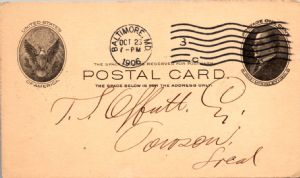 UNITED STATES
OF AMERICA
BALTIMORE, MD.
OCT 23
7-PM
1906
3
C
POSTAL CARD.
THE SPACE BELOW IS FOR THE ADDRESS ONLY.
T. S. Offutt, Esq.
Towson,
Local